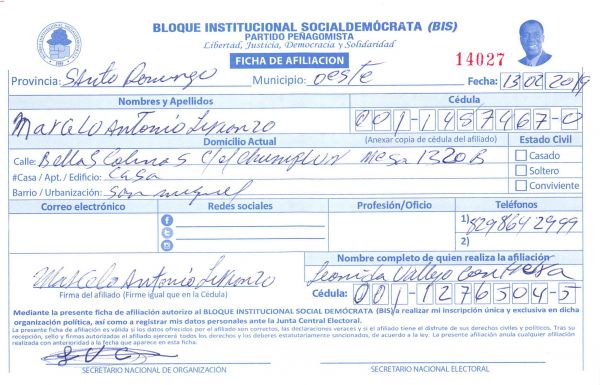 BLOQUE INSTITUCIONAL SOCIALDEMÓCRATA (BIS)
PARTIDO PEÑAGOMISTA
Libertad, Justicia, Democracia y Solidaridad
FICHA DE AFILIACION
14027
Provincia: Santo Domingo Municipio: oeste Fecha: 13 02 2019
Nombres y Apellidos Cédula
Marcelo Antonio 001-1457467-0
Domicilio Actual (Anexar copia de cédula del afiliado) Estado Civil
Calle: Bellas Colinas Mesa 1320B
Casado
#Casa / Apt. / Edificio: Casa
Soltero
Barrio / Urbanización: San miguel
Conviviente
Correo electrónico Redes sociales Profesión/Oficio Teléfonos
1) 8298642999
2)
Nombre completo de quien realiza la afiliación
Marcelo Antonio
Leonida Vallejo Contrera
Firma del afiliado (Firme igual que en la Cédula)
Cédula: 001-1276504-5
Mediante la presente ficha de afiliación autorizo al BLOQUE INSTITUCIONAL SOCIAL DEMÓCRATA (BIS) a realizar mi inscripción única y exclusiva en dicha
organización política, así como a registrar mis datos personales ante la Junta Central Electoral.
La presente ficha de afiliación es válida si los datos ofrecidos por el afiliado son correctos, las declaraciones veraces y si el afiliado tiene el disfrute de sus derechos civiles y políticos. Tras su
recepción, sello y firmas autorizadas el afiliado ejercerá todos los derechos y los deberes estatutariamente sancionados, de acuerdo a la ley. La presente afiliación anula cualquier afiliación
realizada con anterioridad a la fecha que aparece en esta ficha.
SECRETARIO NACIONAL DE ORGANIZACIÓN SECRETARIO NACIONAL ELECTORAL